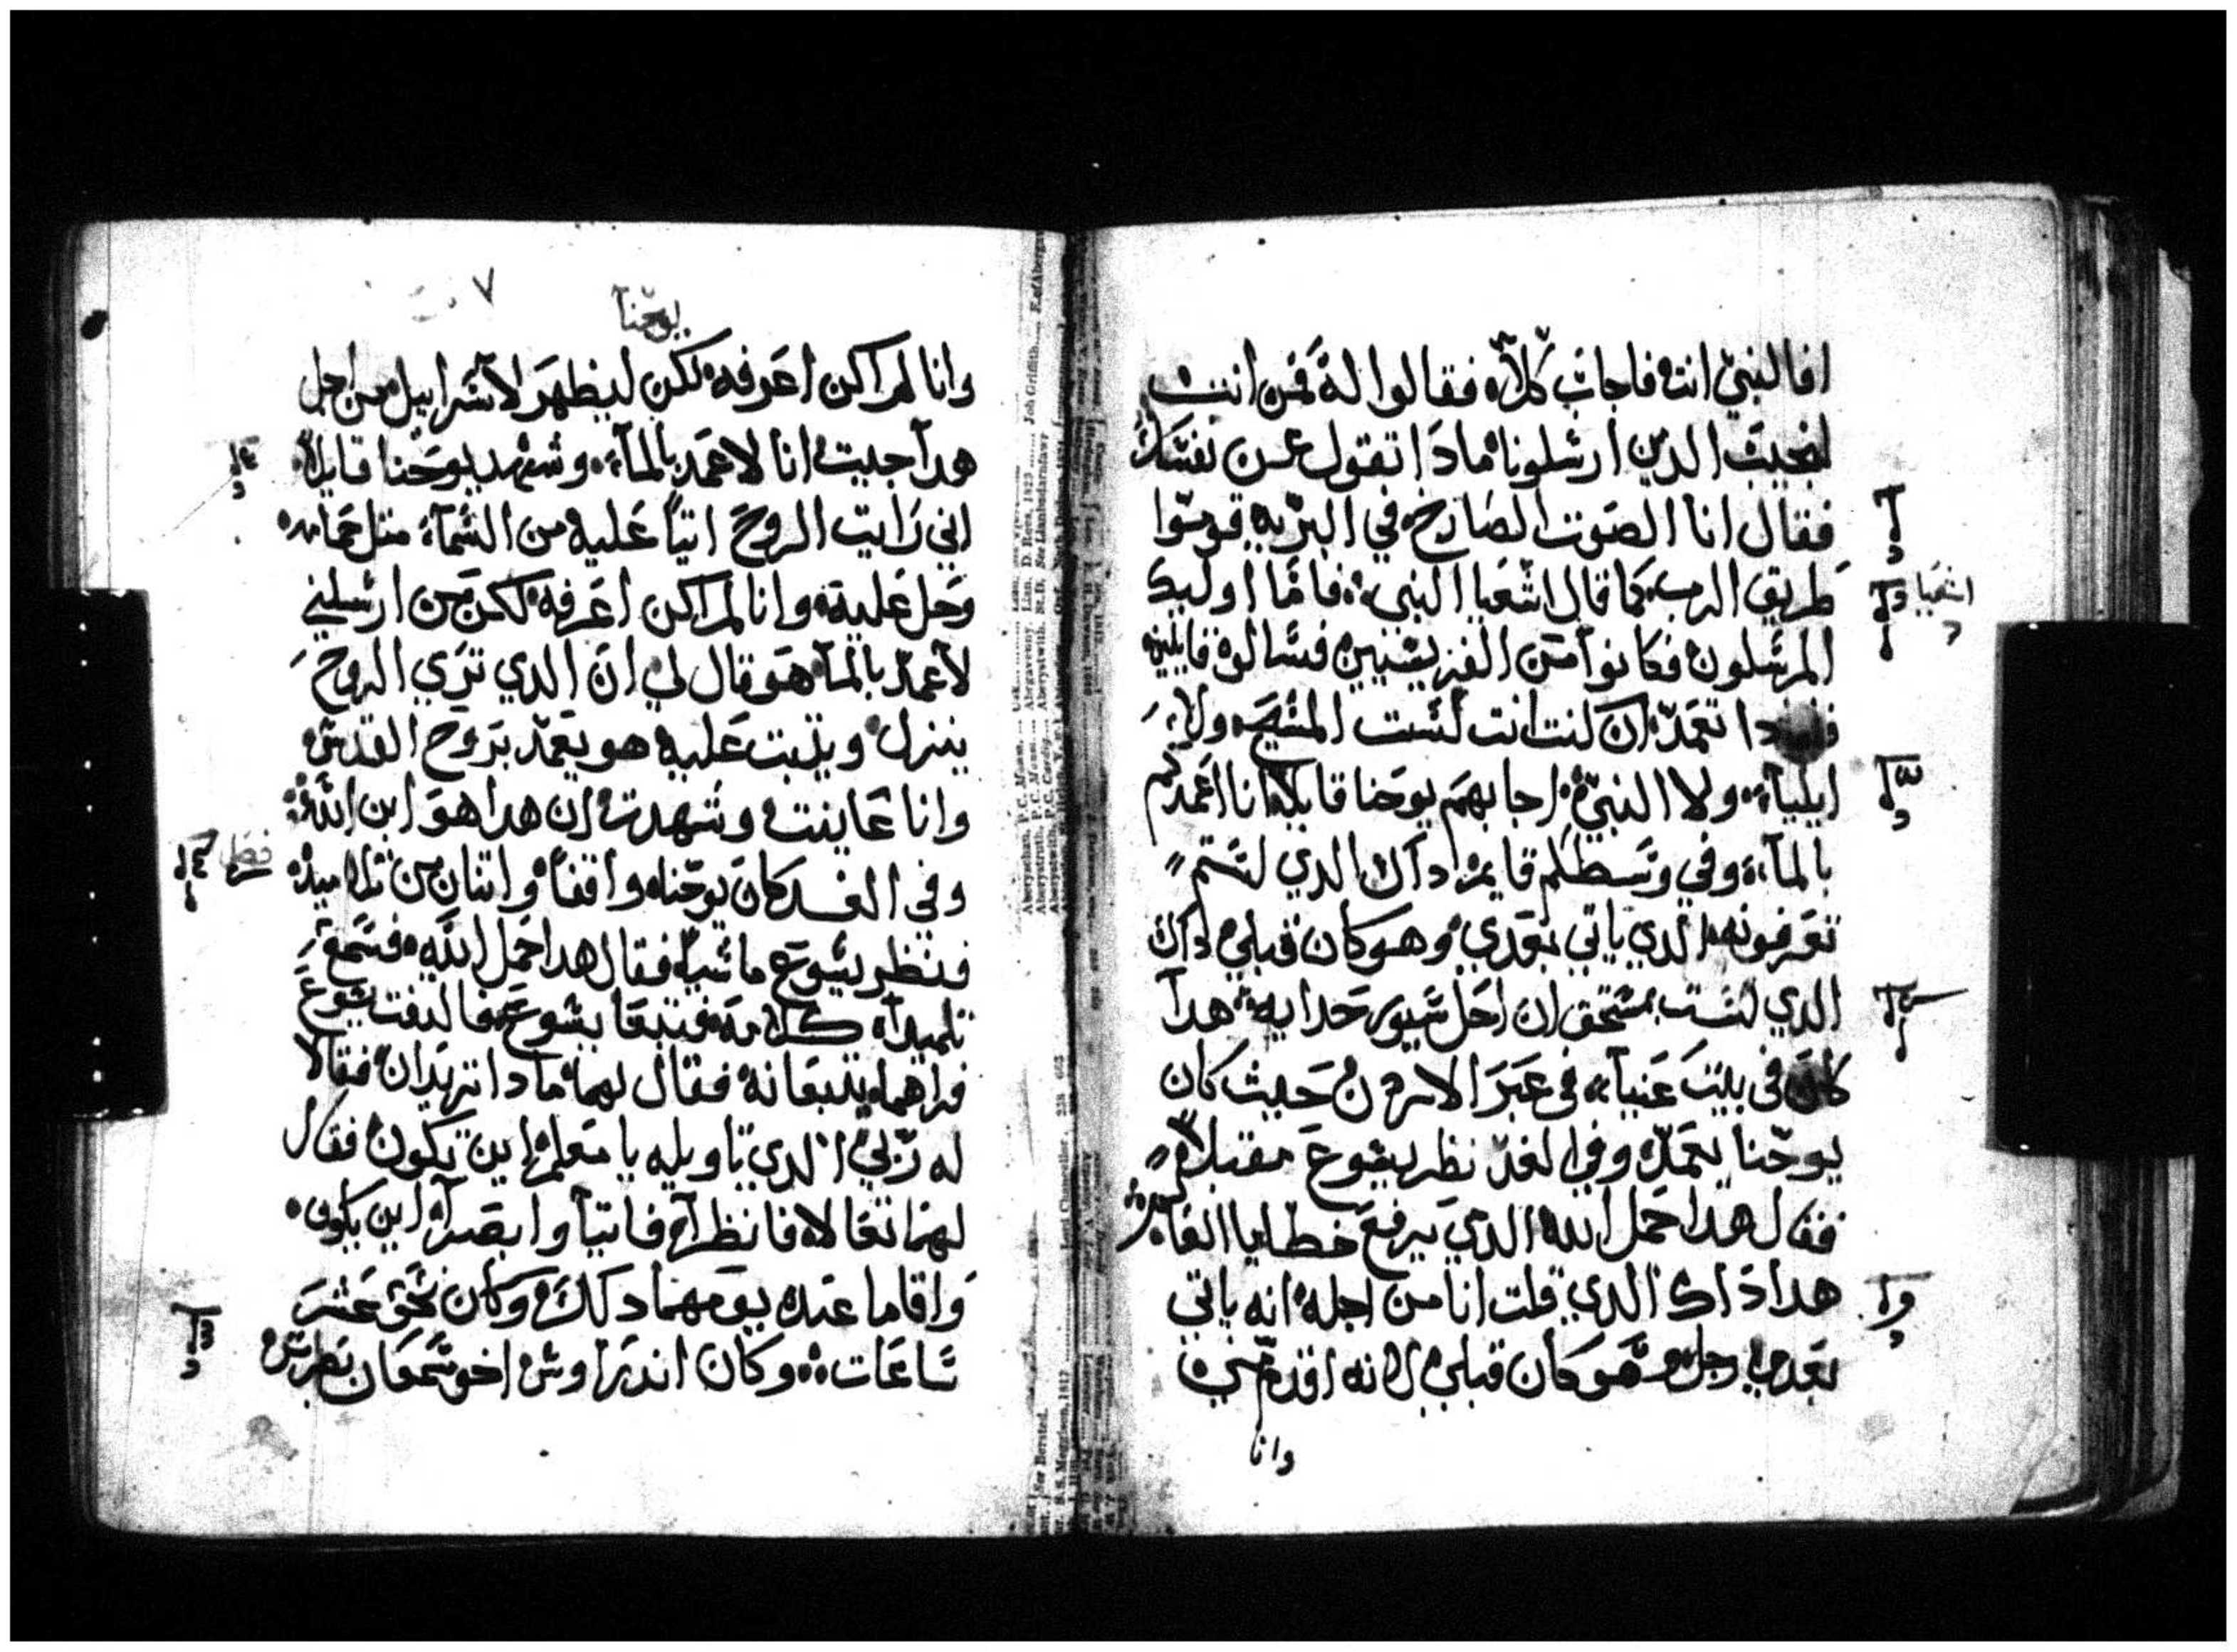 افالنبي انت فاجاب كلا فقالوا له فمن انت
لنجيب الدين ارسلونا مادا تقول عن نفسك
فقال انا الصوت الصارخ في البريه قوموا
طريق الرب كما قال اشعيا النبي فاما اوليك
اشعيا
المرسلون فكانوا من الفريسيين فسالوه قايلين
تعمد ان كنت انت لست المسيح ولا
ايلياء ولا النبي اجابهم يوحنا قايلا انا اعمدكم
بالماء وفي وسطكم قايم داك الدي لستم
تعرفونه الدي ياتي بعدي وهو كان قبلي داك
الدي لست بمستحق ان احل سيور حدايه هدا
كان في بيت عنيا في عبر الاردن حيث كان
يوحنا يعمد وفي الغد نظر يسوع مقبلا
فقال هدا حمل الله الدي يرفع خطايا العالم
هدا داك الدي قلت انا من اجله انه ياتي
بعدي رجل هو كان قبلي لانه اقدم مني
وانا
يوحنا
٧
وانا لم اكن اعرفه لكن ليظهر لاسراييل من اجل
هدا جيت انا لاعمد بالماء وشهد يوحنا قايلا
اني رايت الروح اتيا عليه من السماء متل حمامه
وحل عليه وانا لم اكن اعرفه لكن من ارسلني
لاعمد بالماء هو قال لي ان الدي تري الروح
ينزل ويتبت عليه هو يعمد بروح القدس
وانا عاينت وشهدت ان هدا هو ابن الله
وفي الغد كان يوحنا واقفا واتنان من تلاميده
فنظر يسوع ماشيا فقال هدا حمل الله فسمع
تلميداه كلامه فتبعا يسوع فالتفت يسوع
فراهما يتبعانه فقال لهما مادا تريدان فقالا
له ربي الدي تاويله يا معلم اين تكون فقال
لهما تعالا فانظرا فاتيا وابصرا اين يكون
واقاما عنده يومهما دلك وكان نحو عشر
ساعات وكان اندراوس اخو سمعان بطرس